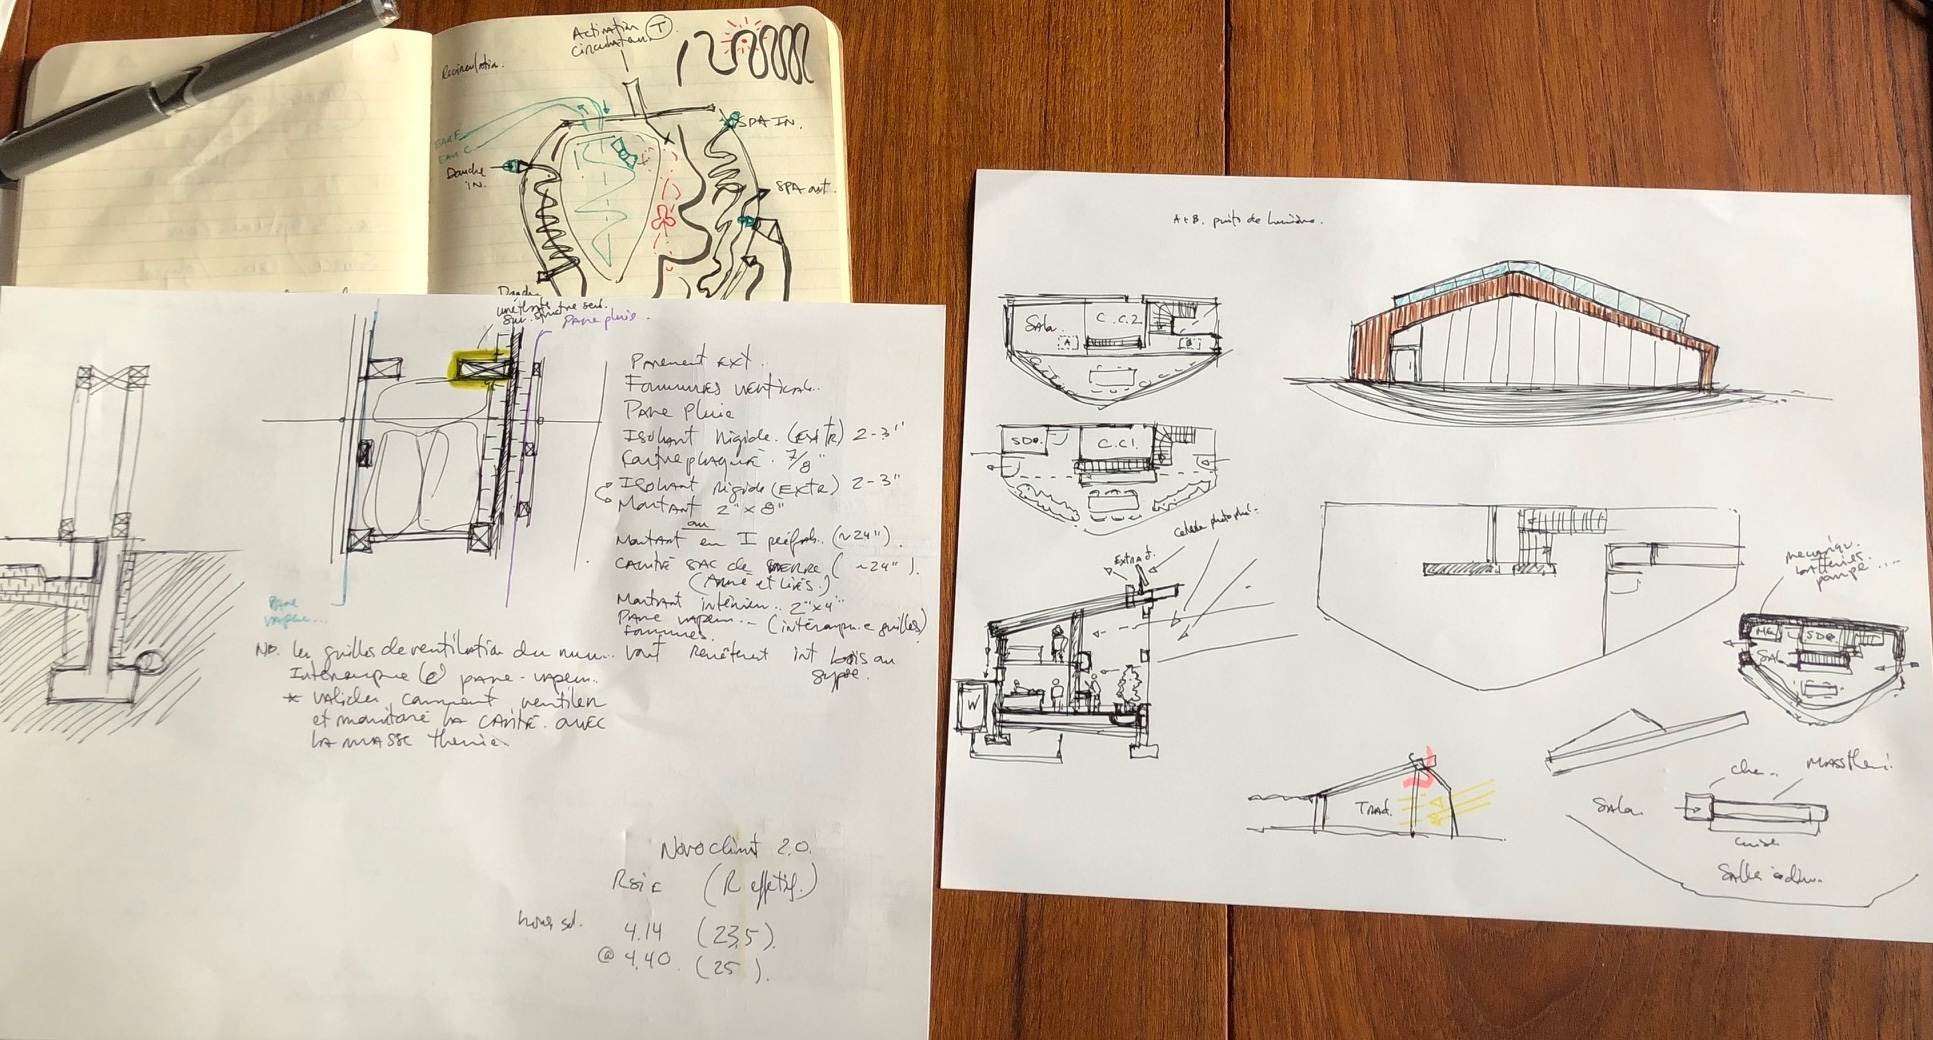 Activation (T)
circulateur
Recirculation.
SPA IN.
EAU F
EAU C
Douche
IN.
SPA out.
sur structure seul.
Pare pluie.
Parement Ext.
Fourrures verticales.
Pare pluie
Isolant rigide. (Extr) 2-3"
Contreplaqué. 7/8"
Isolant rigide (Extr) 2-3"
Montant 2" x 8"
ou
Montant en I préfab. (~24").
Cavité sac de (~24").
Montant intérieur.. 2"x4"
Pare vapeur.. (interrompu e grilles)
fourrures.
Revêtement int bois ou
gypse.
Pare
vapeur...
les grilles de ventilation du mur..
pare-vapeur..
* valider comment ventiler
et la cavité. avec
la masse thermi.
Novoclimat 2.0.
RSIE (R effectif.)
hors sol. 4.14 (23,5).
@ 4.40. (25).
A+B. puits de lumière.
Salon C.C.2.
A B
SDB. C.C.1.
Extrad.
W
mécaniqu.
batteries
pompe....
SDB.
Sal.
Trad.
Che.. MASSthe..
Salon
cuisi
Salle à din..